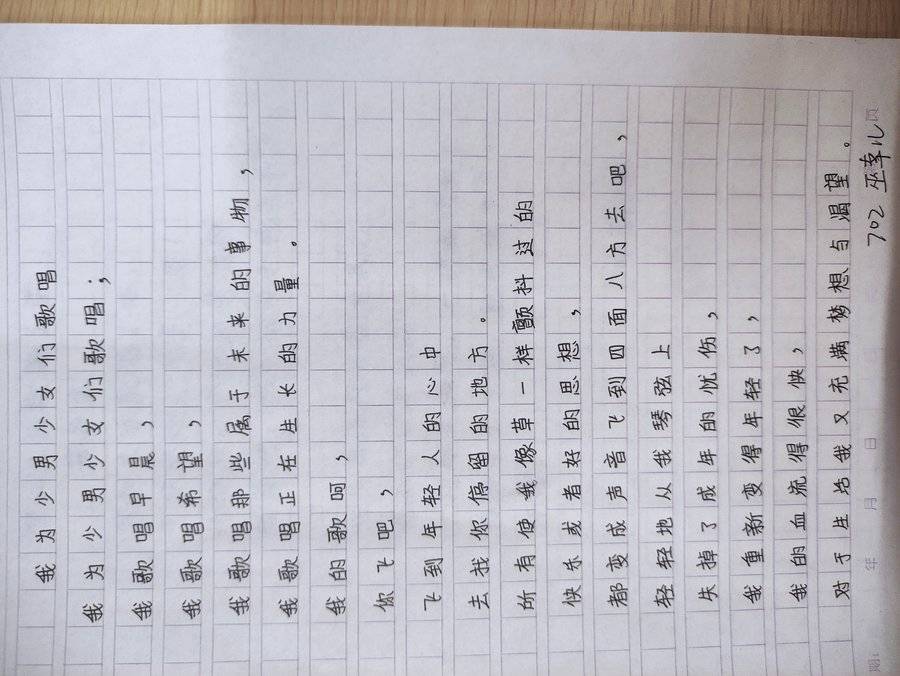 我为少男少女们歌唱
我为少男少女们歌唱；
我歌唱早晨，
我歌唱希望，
我歌唱那些属于未来的事物，
我歌唱正在生长的力量。
我的歌呵，
你飞吧，
飞到年轻人的心中
去找你停留的地方。
所有使我像草一样颤抖过的
快乐或者好的思想，
都变成声音飞到四面八方去吧，
轻轻地从我琴弦上
失掉了成年的忧伤，
我重新变得年轻了，
我的血流得很快，
对于生活我又充满梦想与渴望。
702 巫幸儿
期： 年 月 日 页